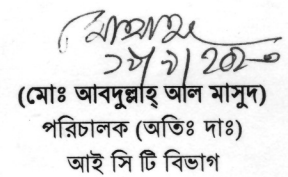 (মোঃ আবদুল্লাহ্ আল মাসুদ)
পরিচালক (অতিঃ দাঃ)
আই সি টি বিভাগ